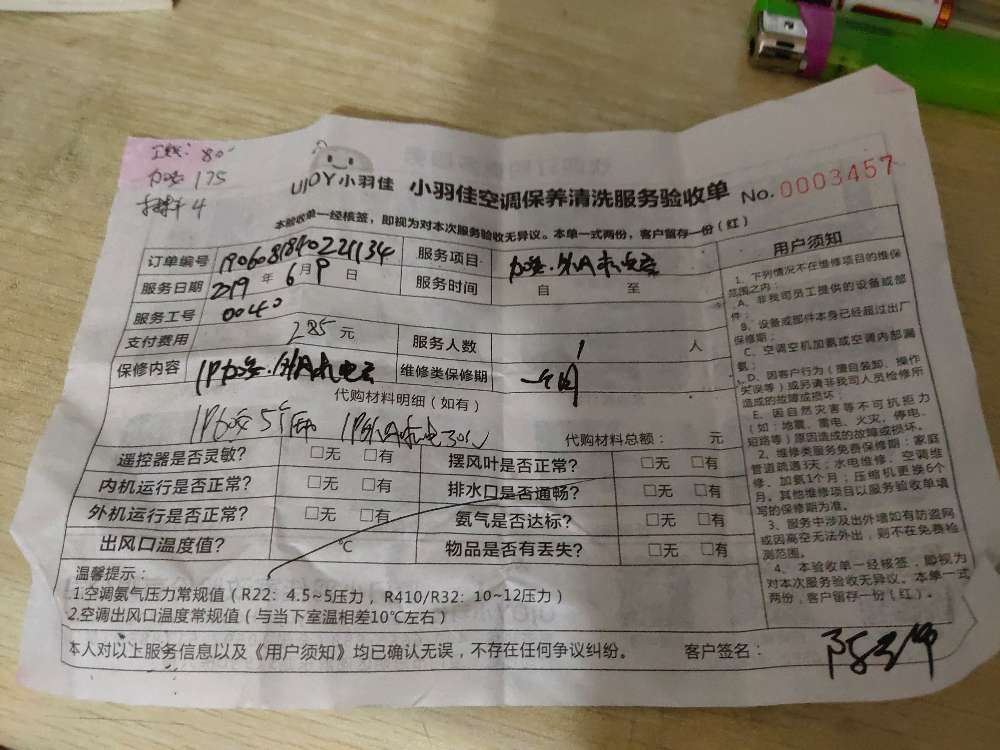 80
175
4
UJOY小羽佳 小羽佳空调保养清洗服务验收单 No. 0003457
本验收单一经核签，即视为对本次服务验收无异议。本单一式两份，客户留存一份（红）
订单编号 服务项目
服务日期 2019 年 6 月 9 日 服务时间 自 至
服务工号 0040
支付费用 285 元 服务人数 1 人
保修内容 维修类保修期 一个月
代购材料明细（如有）
代购材料总额： 元
遥控器是否灵敏? □无 □有 摆风叶是否正常? □无 □有
内机运行是否正常? □无 □有 排水口是否通畅? □无 □有
外机运行是否正常? □无 □有 氨气是否达标? □无 □有
出风口温度值? ℃ 物品是否有丢失? □无 □有
温馨提示：
1.空调氨气压力常规值（R22：4.5~5压力，R410/R32：10~12压力）
2.空调出风口温度常规值（与当下室温相差10℃左右）
本人对以上服务信息以及《用户须知》均已确认无误，不存在任何争议纠纷。 客户签名：
用户须知
1、下列情况不在维修项目的维保
范围之内：
A、非我司员工提供的设备或部
件；
B、设备或部件本身已经超过出厂
保修期；
C、空调空机加氨或空调内部漏
氨；
D、因客户行为（擅自装卸、操作
失误等）或另请非我司人员检修所
造成的故障或损坏；
E、因自然灾害等不可抗拒力
（如：地震、雷电、火灾、停电、
短路等）原因造成的故障或损坏。
2、维修类服务免费保修期：家庭
管道疏通3天；水电维修、空调维
修、加氨1个月；压缩机更换6个
月。其他维修项目以服务验收单填
写的保修期为准。
3、服务中涉及出外墙如有防盗网
或因高空无法外出，则不在免费检
测范围。
4、本验收单一经核签，即视为
对本次服务验收无异议。本单一式
两份，客户留存一份（红）。